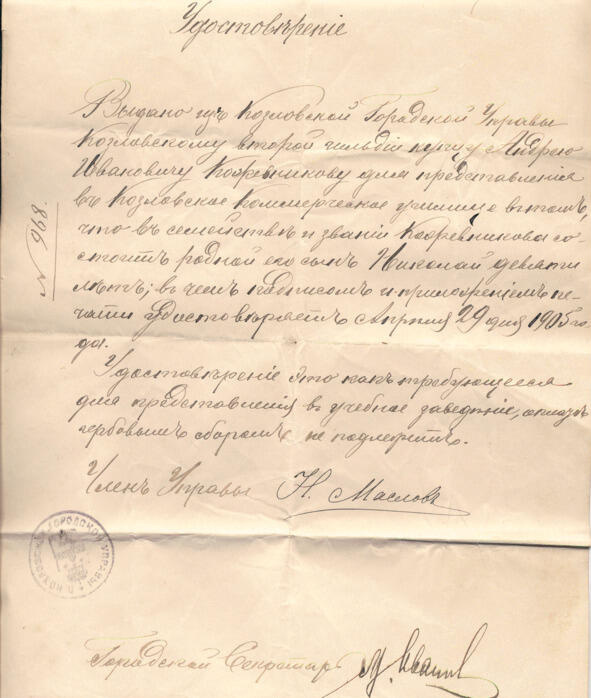 Удостовѣреніе
Выдано изъ Козловской Городской Управы
Козловскому второй гильдіи купцу Андрею
Ивановичу Кожевникову для представленія
въ Козловское Коммерческое училище въ томъ,
что въ семействѣ и званіи Кожевникова со-
стоитъ родной его сынъ Николай девяти
лѣтъ; въ чемъ подписомъ и приложеніемъ пе-
чати удостовѣряетъ Апрѣля 29 дня 1905 го-
да.
№ 968.
Удостовѣреніе это какъ требующееся
для представленія въ учебное заведеніе, оплатѣ
гербовымъ сборомъ не подлежитъ.
Членъ Управы Н. Масловъ
КОЗЛОВСКОЙ ГОРОДСКОЙ УПРАВЫ
Городской Секретарь